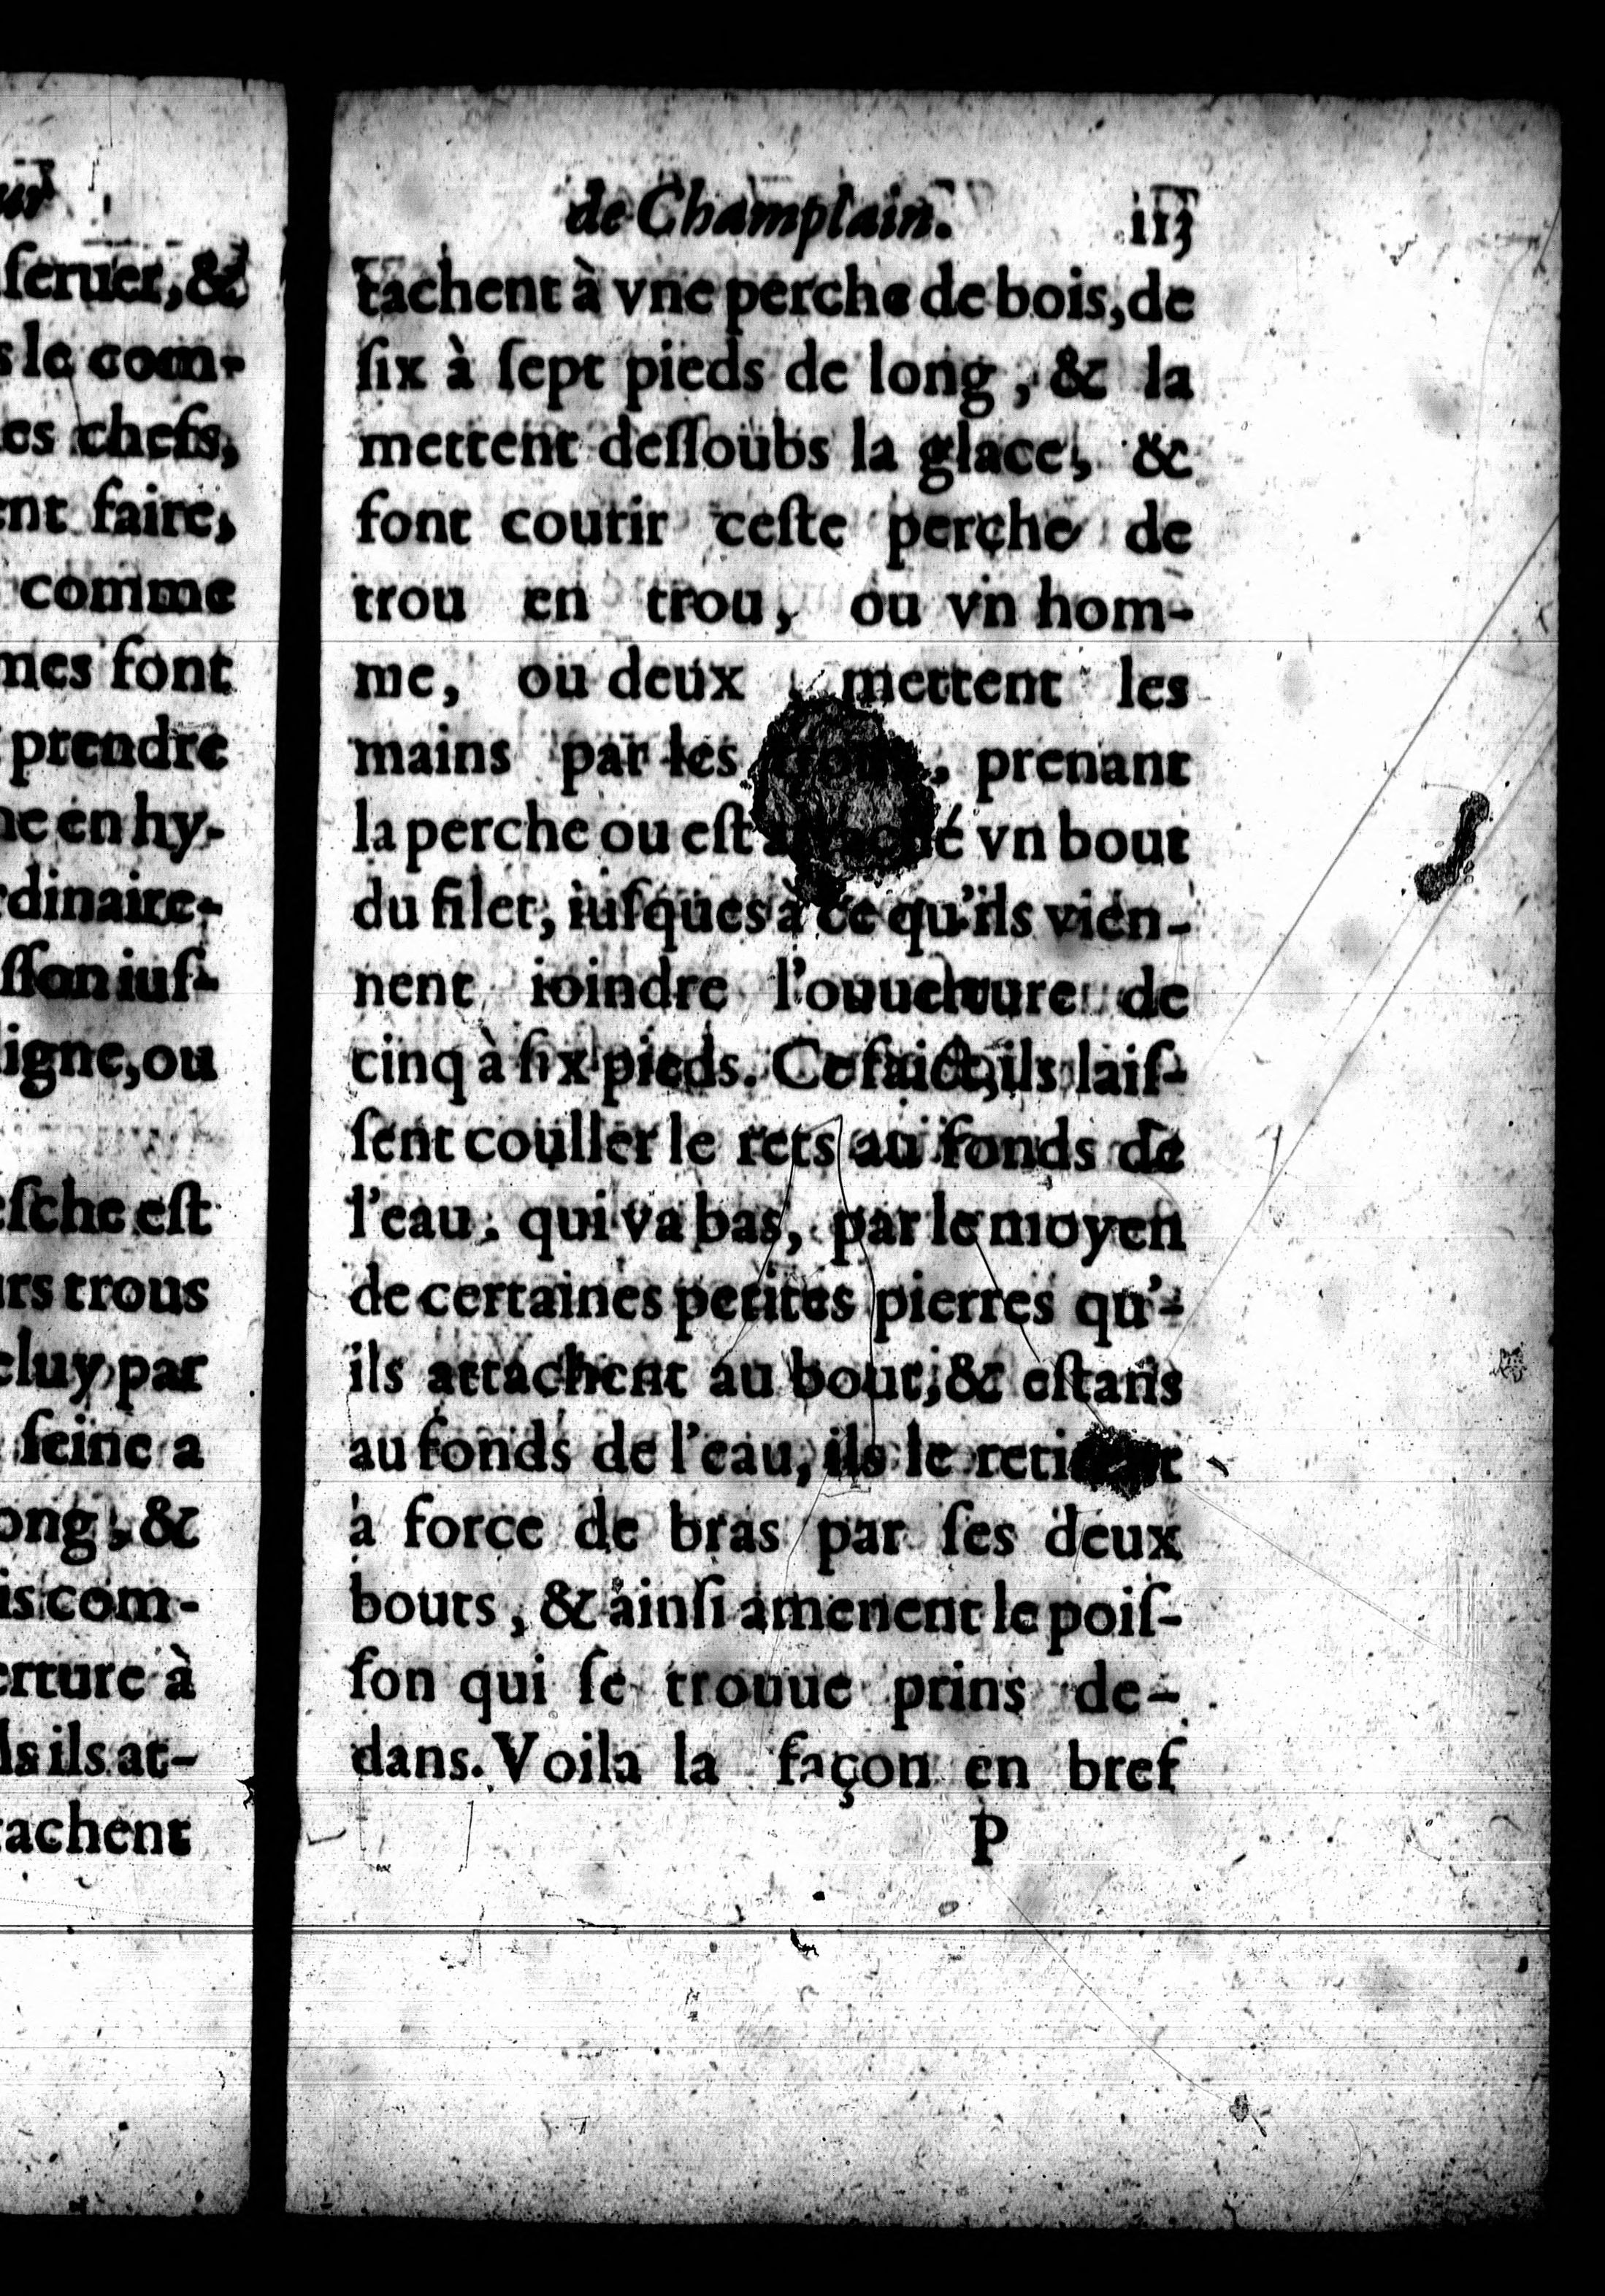 ur
ſeruer, &
s le com-
es chefs,
ent faire,
comme
mes font
prendre
ne en hy-
rdinaire-
ſſon iuſ-
igne, ou
eſche eſt
urs trous
cluy par
ſeine a
ong, &
is com-
erture à
ls ils at-
tachent
de Champlain. 113
tachent à vne perche de bois, de
ſix à ſept pieds de long, & la
mettent deſſoubs la glace, &
font courir ceſte perche de
trou en trou, ou vn hom-
me, ou deux mettent les
mains par les trous, prenant
la perche ou eſt attaché vn bout
du filet, iuſques à ce qu'ils vien-
nent ioindre l'ouuerture de
cinq à ſix pieds. Ce faict, ils laiſ-
ſent couller le rets au fonds de
l'eau, qui va bas, par le moyen
de certaines petites pierres qu'-
ils attachent au bout, & eſtans
au fonds de l'eau, ils le retirent
a force de bras par ſes deux
bouts, & ainſi amenent le poiſ-
ſon qui ſe trouue prins de-
dans. Voila la façon en bref
P